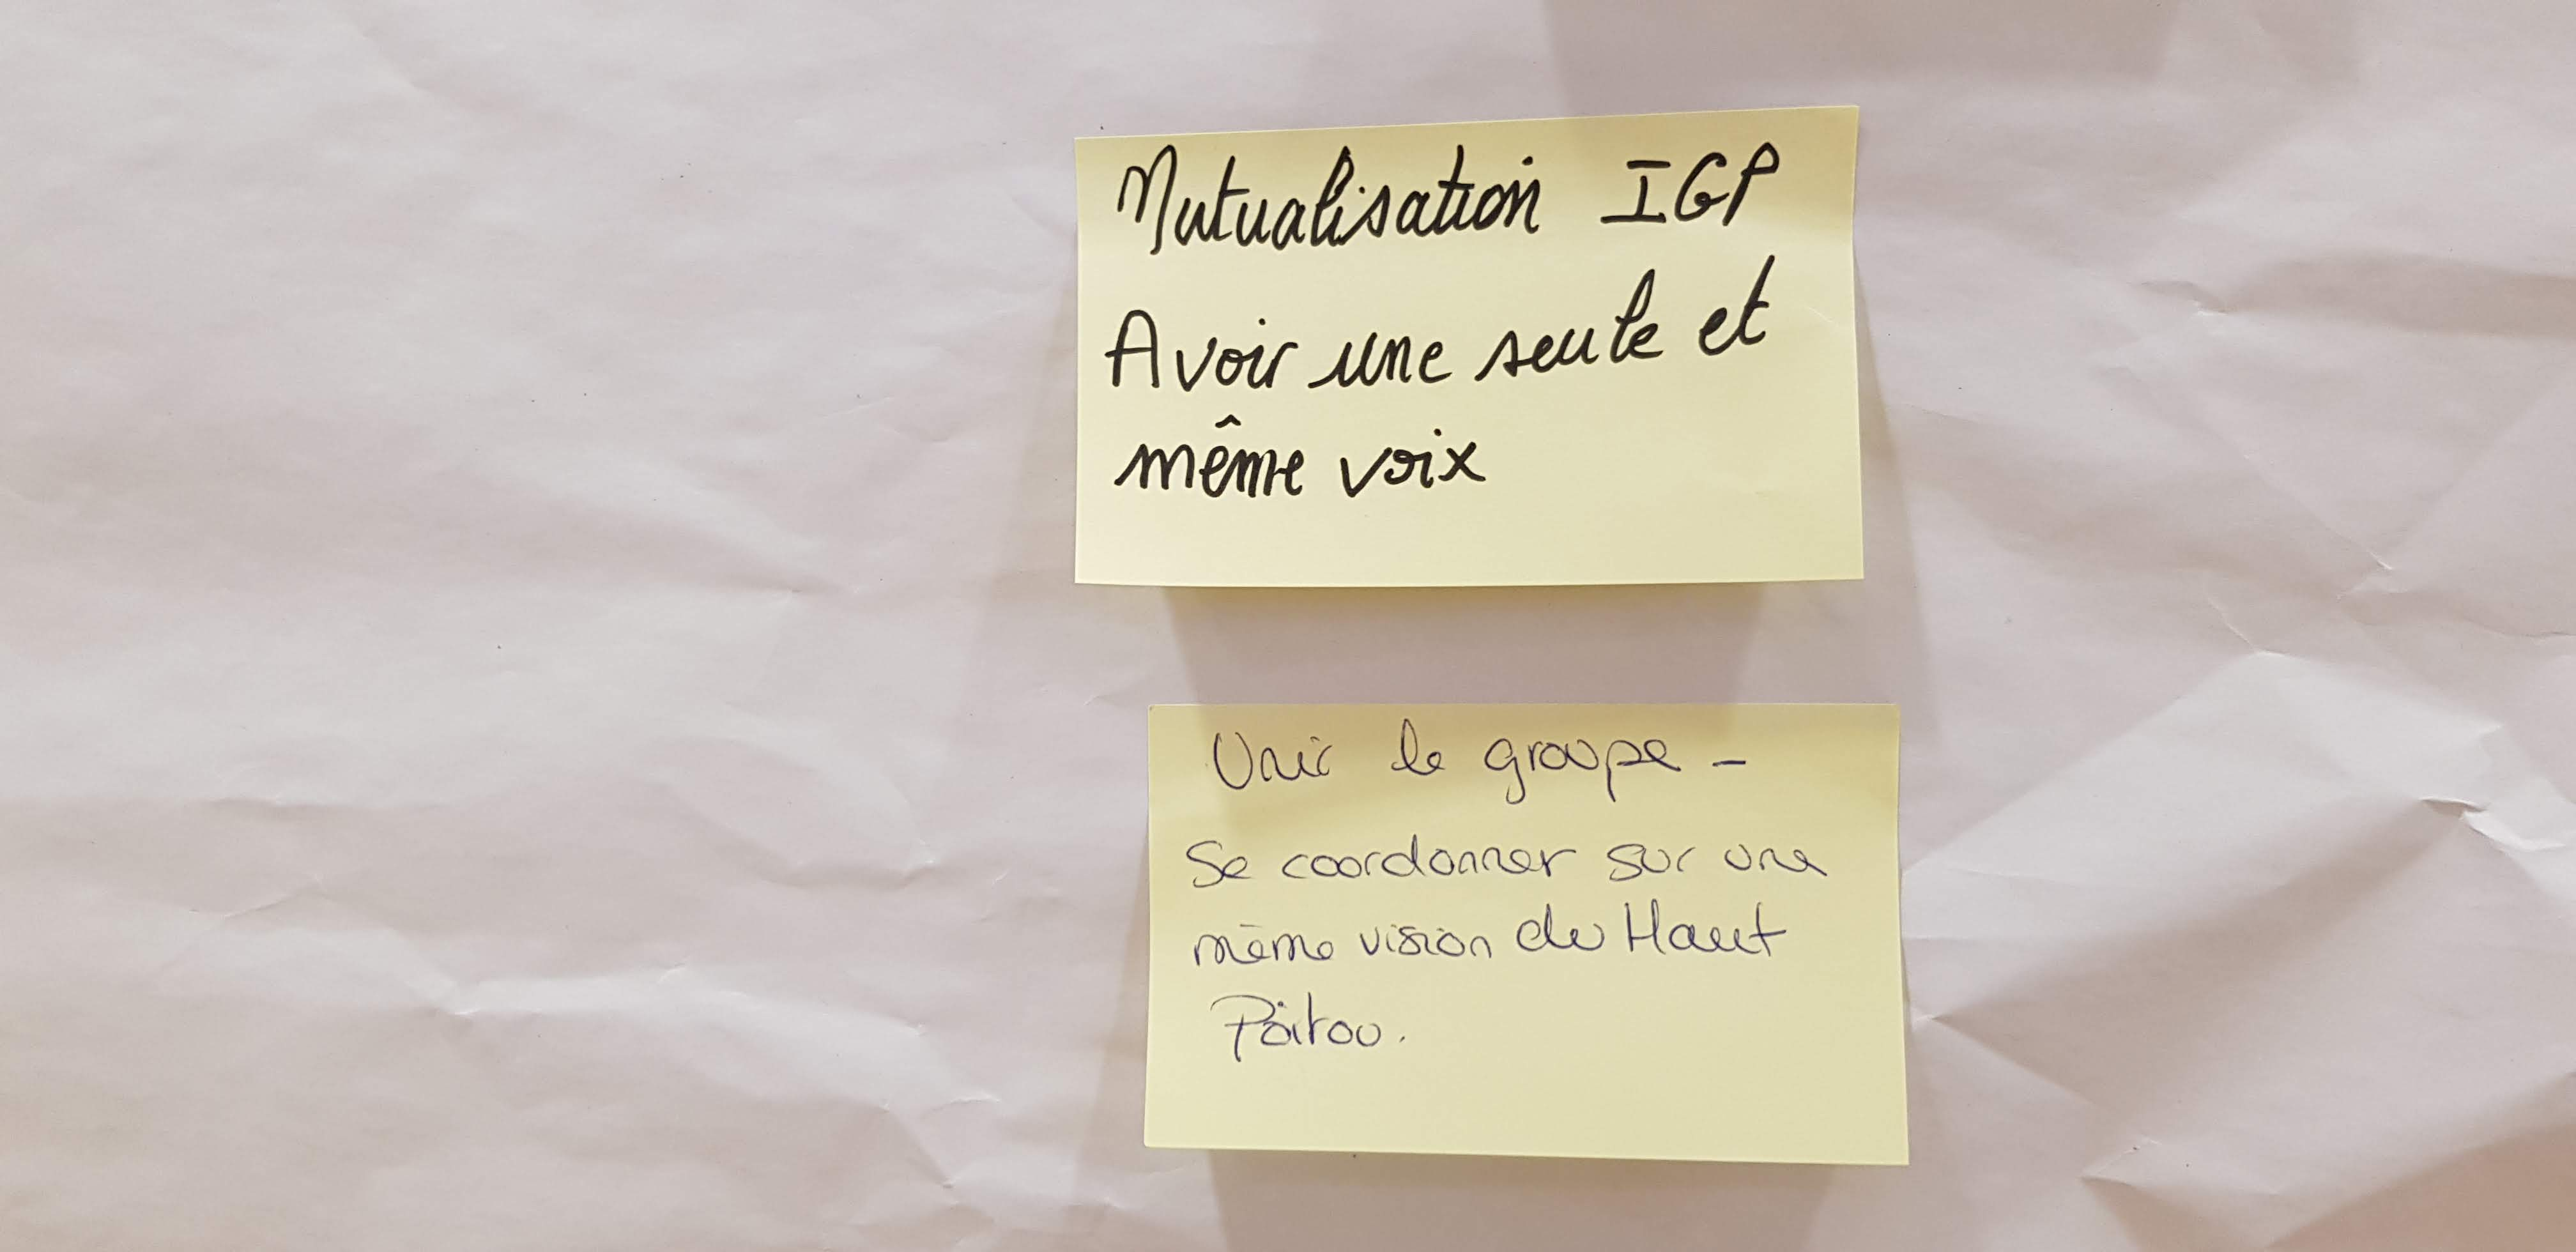 Mutualisation IGP
Avoir une seule et
même voix
Unir le groupe -
Se coordonner sur une
même vision du Haut
Poitou.